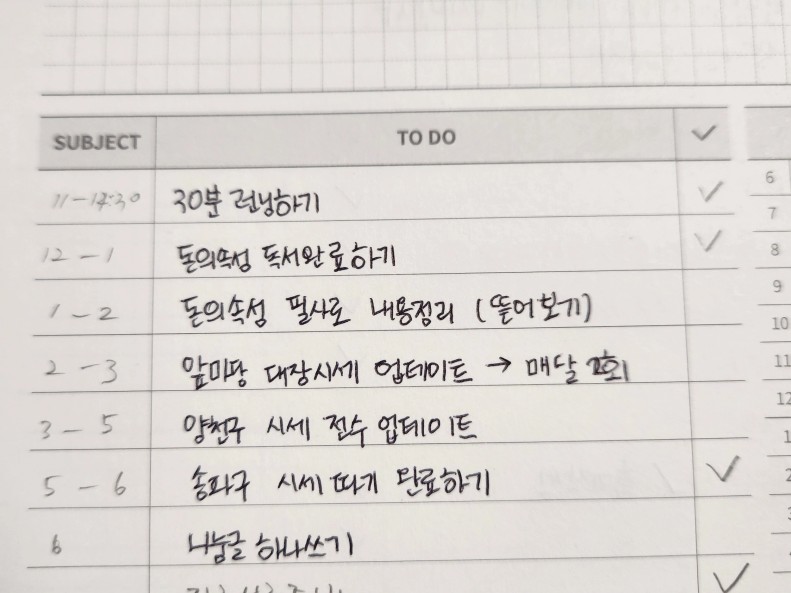 SUBJECT TO DO ✓
11-12:30 30분 런닝하기 ✓
12 - 1 돈의속성 독서완료하기 ✓
1 - 2 돈의속성 필사로 내용정리 (뜯어보기)
2 - 3 앞마당 대장시세 업데이트 → 매달 2회
3 - 5 양천구 시세 전수 업데이트
5 - 6 송파구 시세 따기 완료하기 ✓
6 나눔글 하나쓰기
✓
6
7
8
9
10
11
12
1
2
3